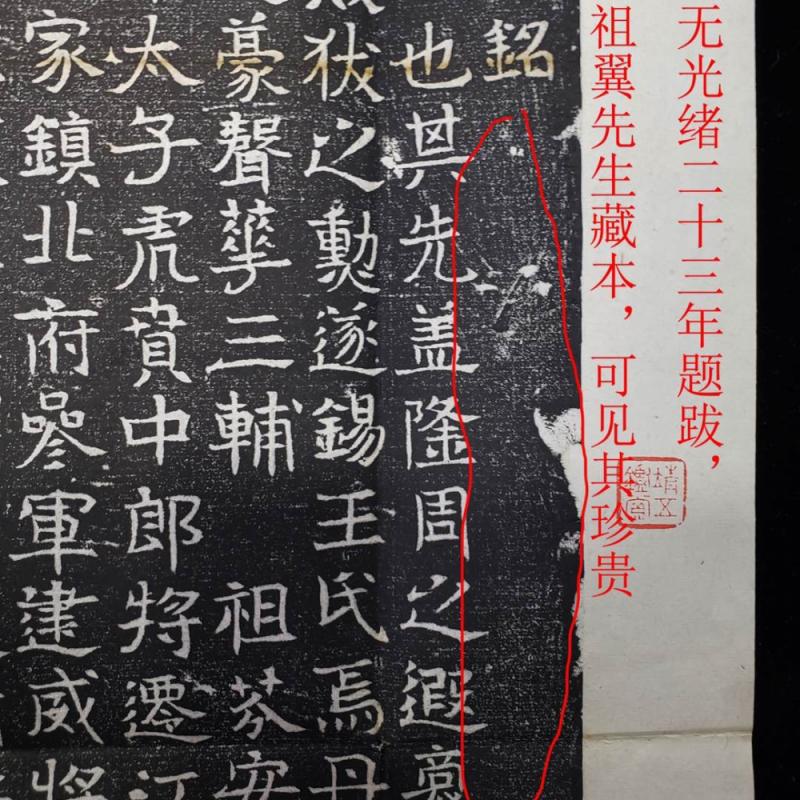 无光绪二十三年题跋，
祖翼先生藏本，可见其珍贵
銘
也其先盖隆周之遐
狄之勳遂錫王氏焉丹
豪聲華三輔 祖芬安
太子虎賁中郎將遷江
家鎮北府參軍建威將